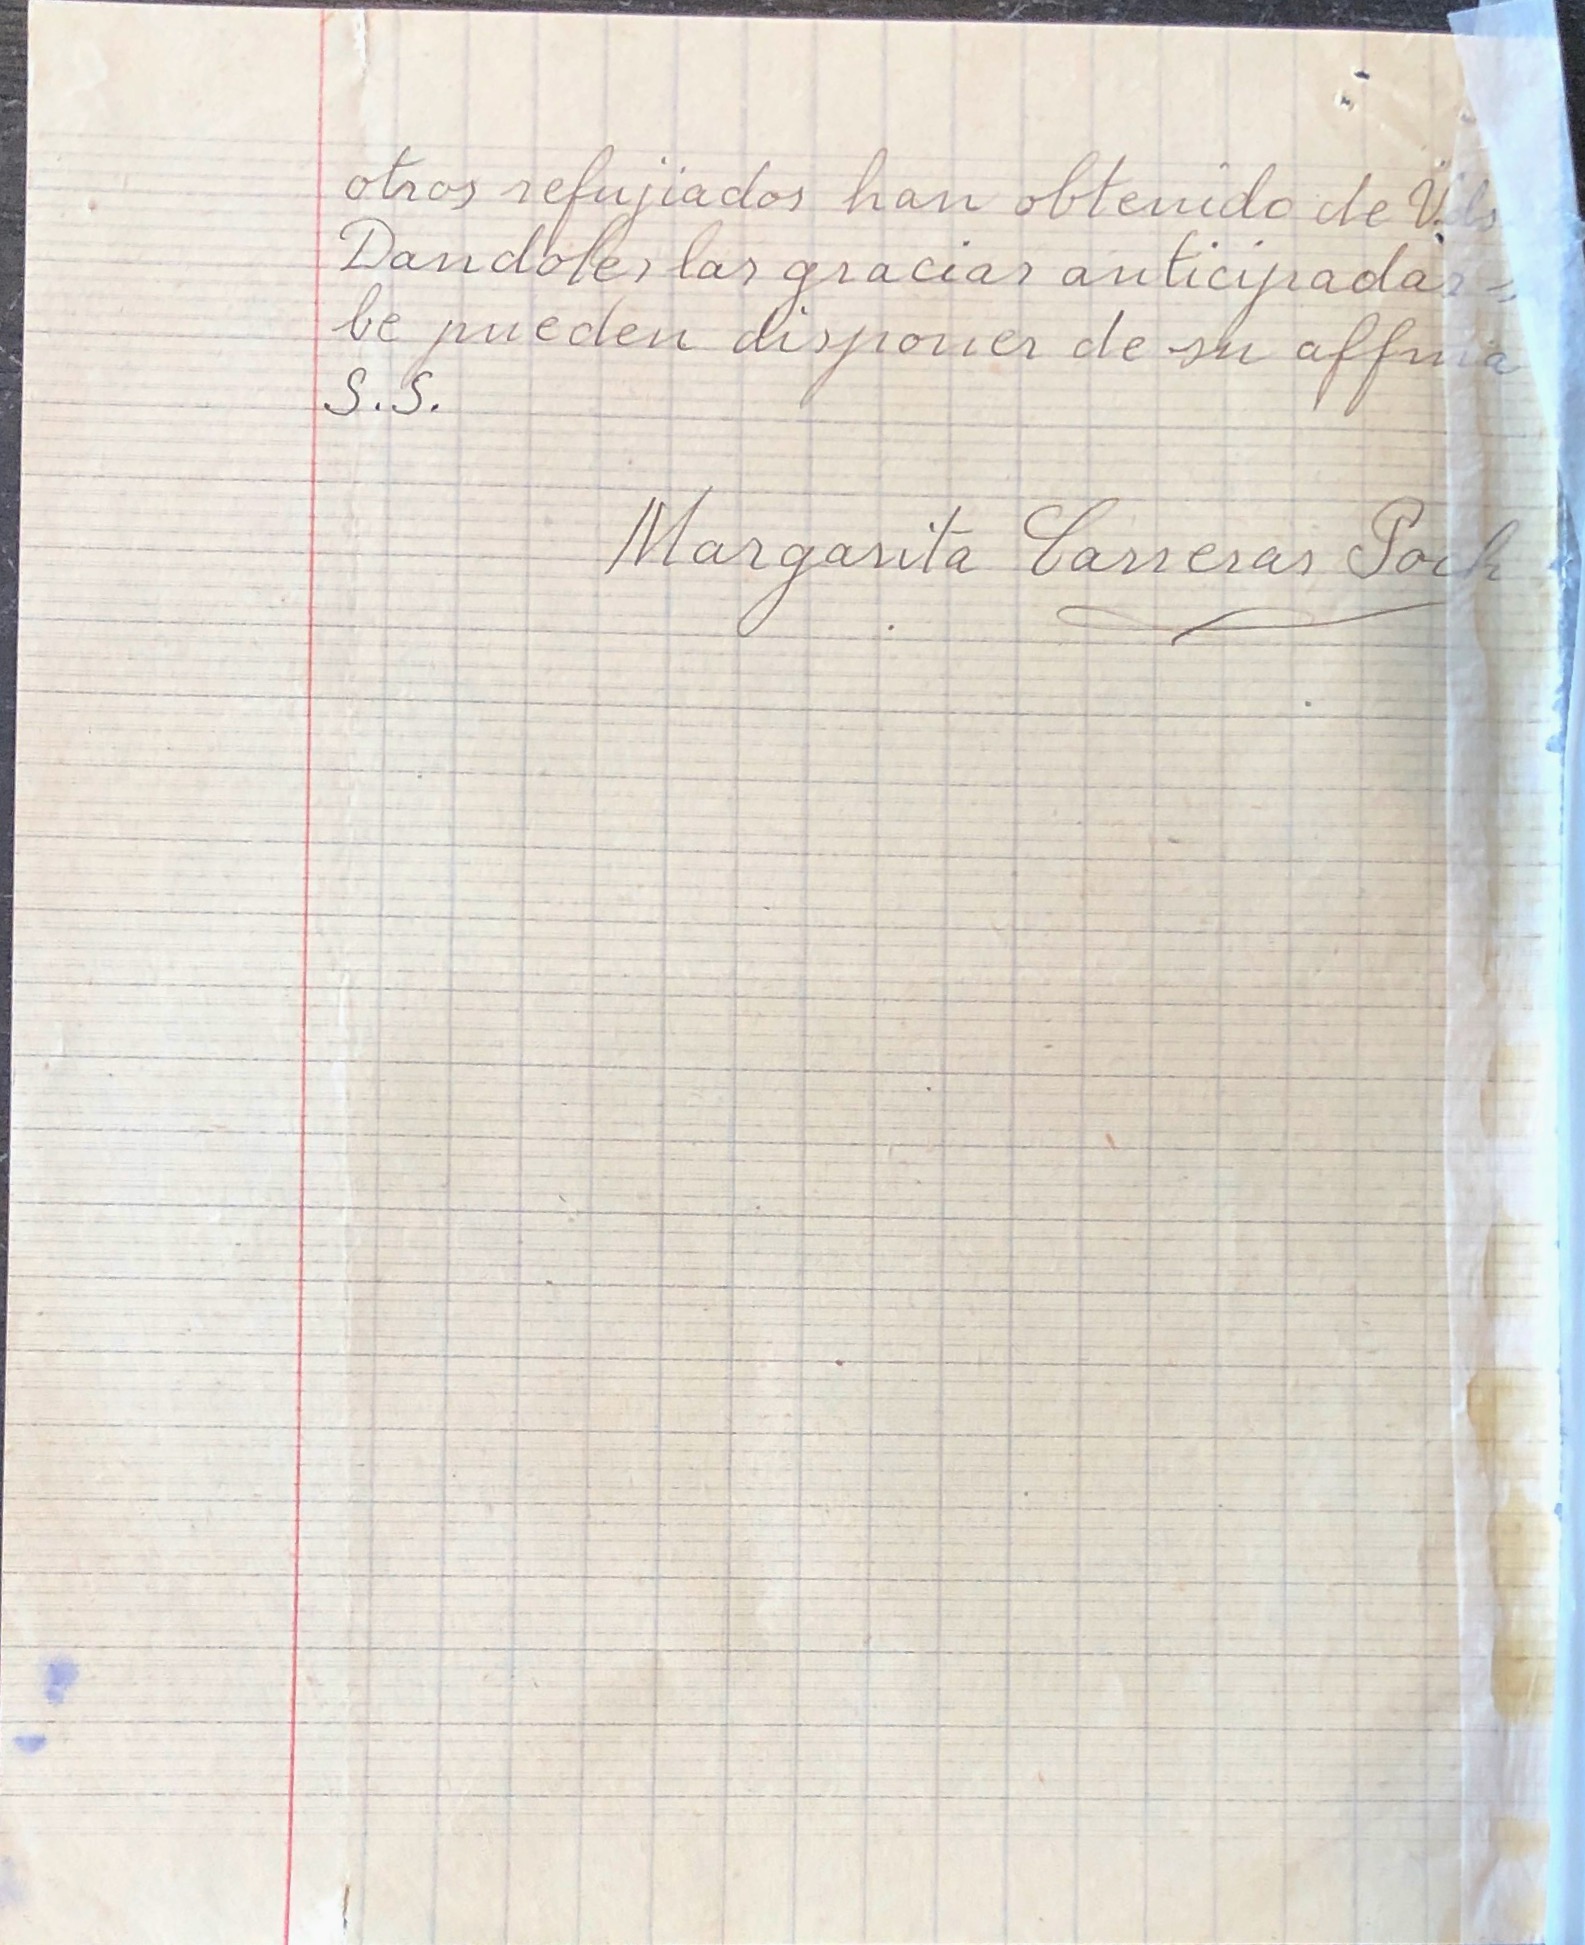 otros refujiados han obtenido de Vds
Dandoles las gracias anticipadas sa
be pueden disponer de su affma
S.S.
Margarita Carreras Poch